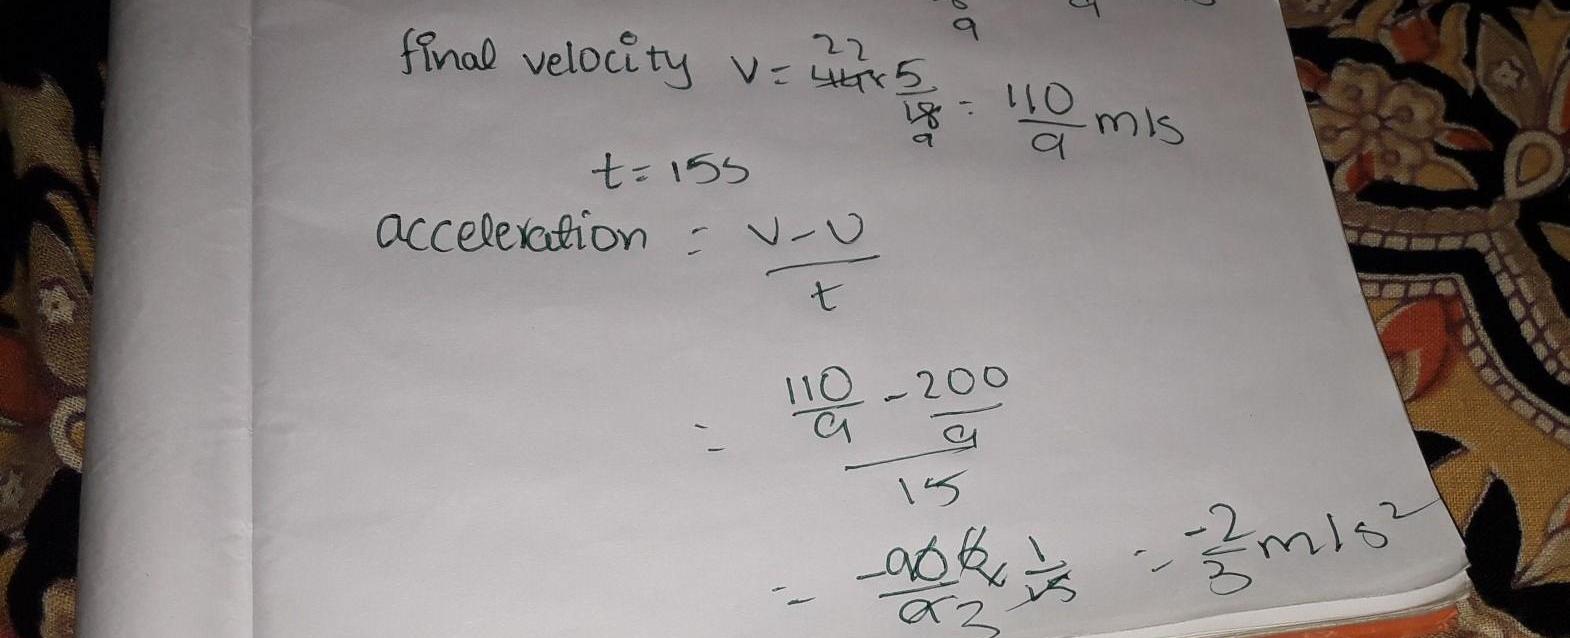 9
final velocity v = 22
44 × 5/18 = 110/9 m/s
9
t = 15s
acceleration = v - u
t
= 110/9 - 200/9
15
= -90/9 × 1/15 = -2/3 m/s²
3